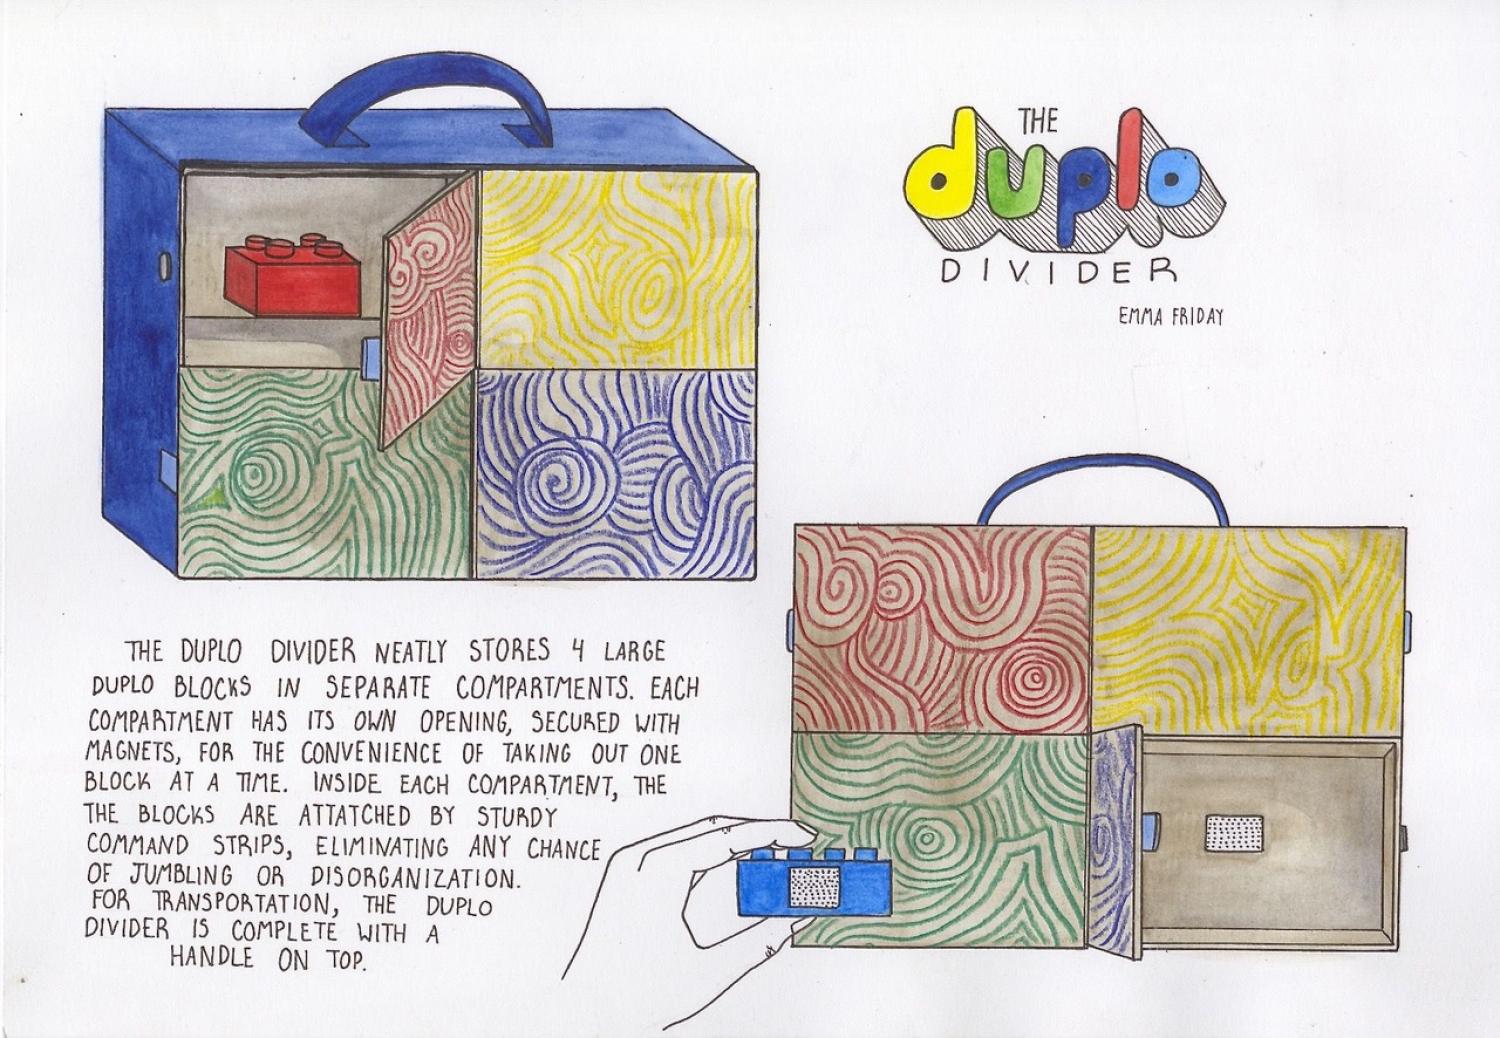 THE
duplo
DIVIDER
EMMA FRIDAY
THE DUPLO DIVIDER NEATLY STORES 4 LARGE
DUPLO BLOCKS IN SEPARATE COMPARTMENTS. EACH
COMPARTMENT HAS ITS OWN OPENING, SECURED WITH
MAGNETS, FOR THE CONVENIENCE OF TAKING OUT ONE
BLOCK AT A TIME. INSIDE EACH COMPARTMENT, THE
THE BLOCKS ARE ATTATCHED BY STURDY
COMMAND STRIPS, ELIMINATING ANY CHANCE
OF JUMBLING OR DISORGANIZATION.
FOR TRANSPORTATION, THE DUPLO
DIVIDER IS COMPLETE WITH A
HANDLE ON TOP.